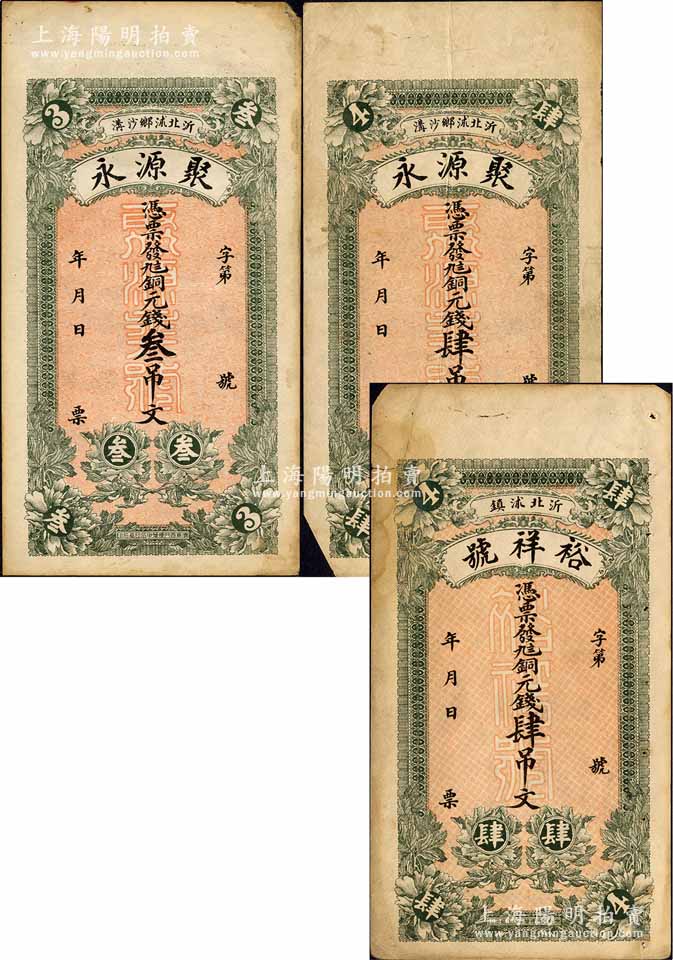 上海陽明拍賣
www.yangmingauction.com
3 叁
沂北沭鄉沙溝
聚源永
字第 號
憑票發九六銅元錢叁吊文
年月日 票
叁 叁
叁 3
4 肆
沂北沭鄉沙溝
聚源永
字第 號
憑票發九六銅元錢肆吊
年月日
肆
上海陽明拍賣
www.yangmingauction.com
4 肆
沂北沭鎮
裕祥號
字第 號
憑票發九六銅元錢肆吊文
年月日 票
肆 肆
肆 4
上海陽明拍賣
www.yangmingauction.com